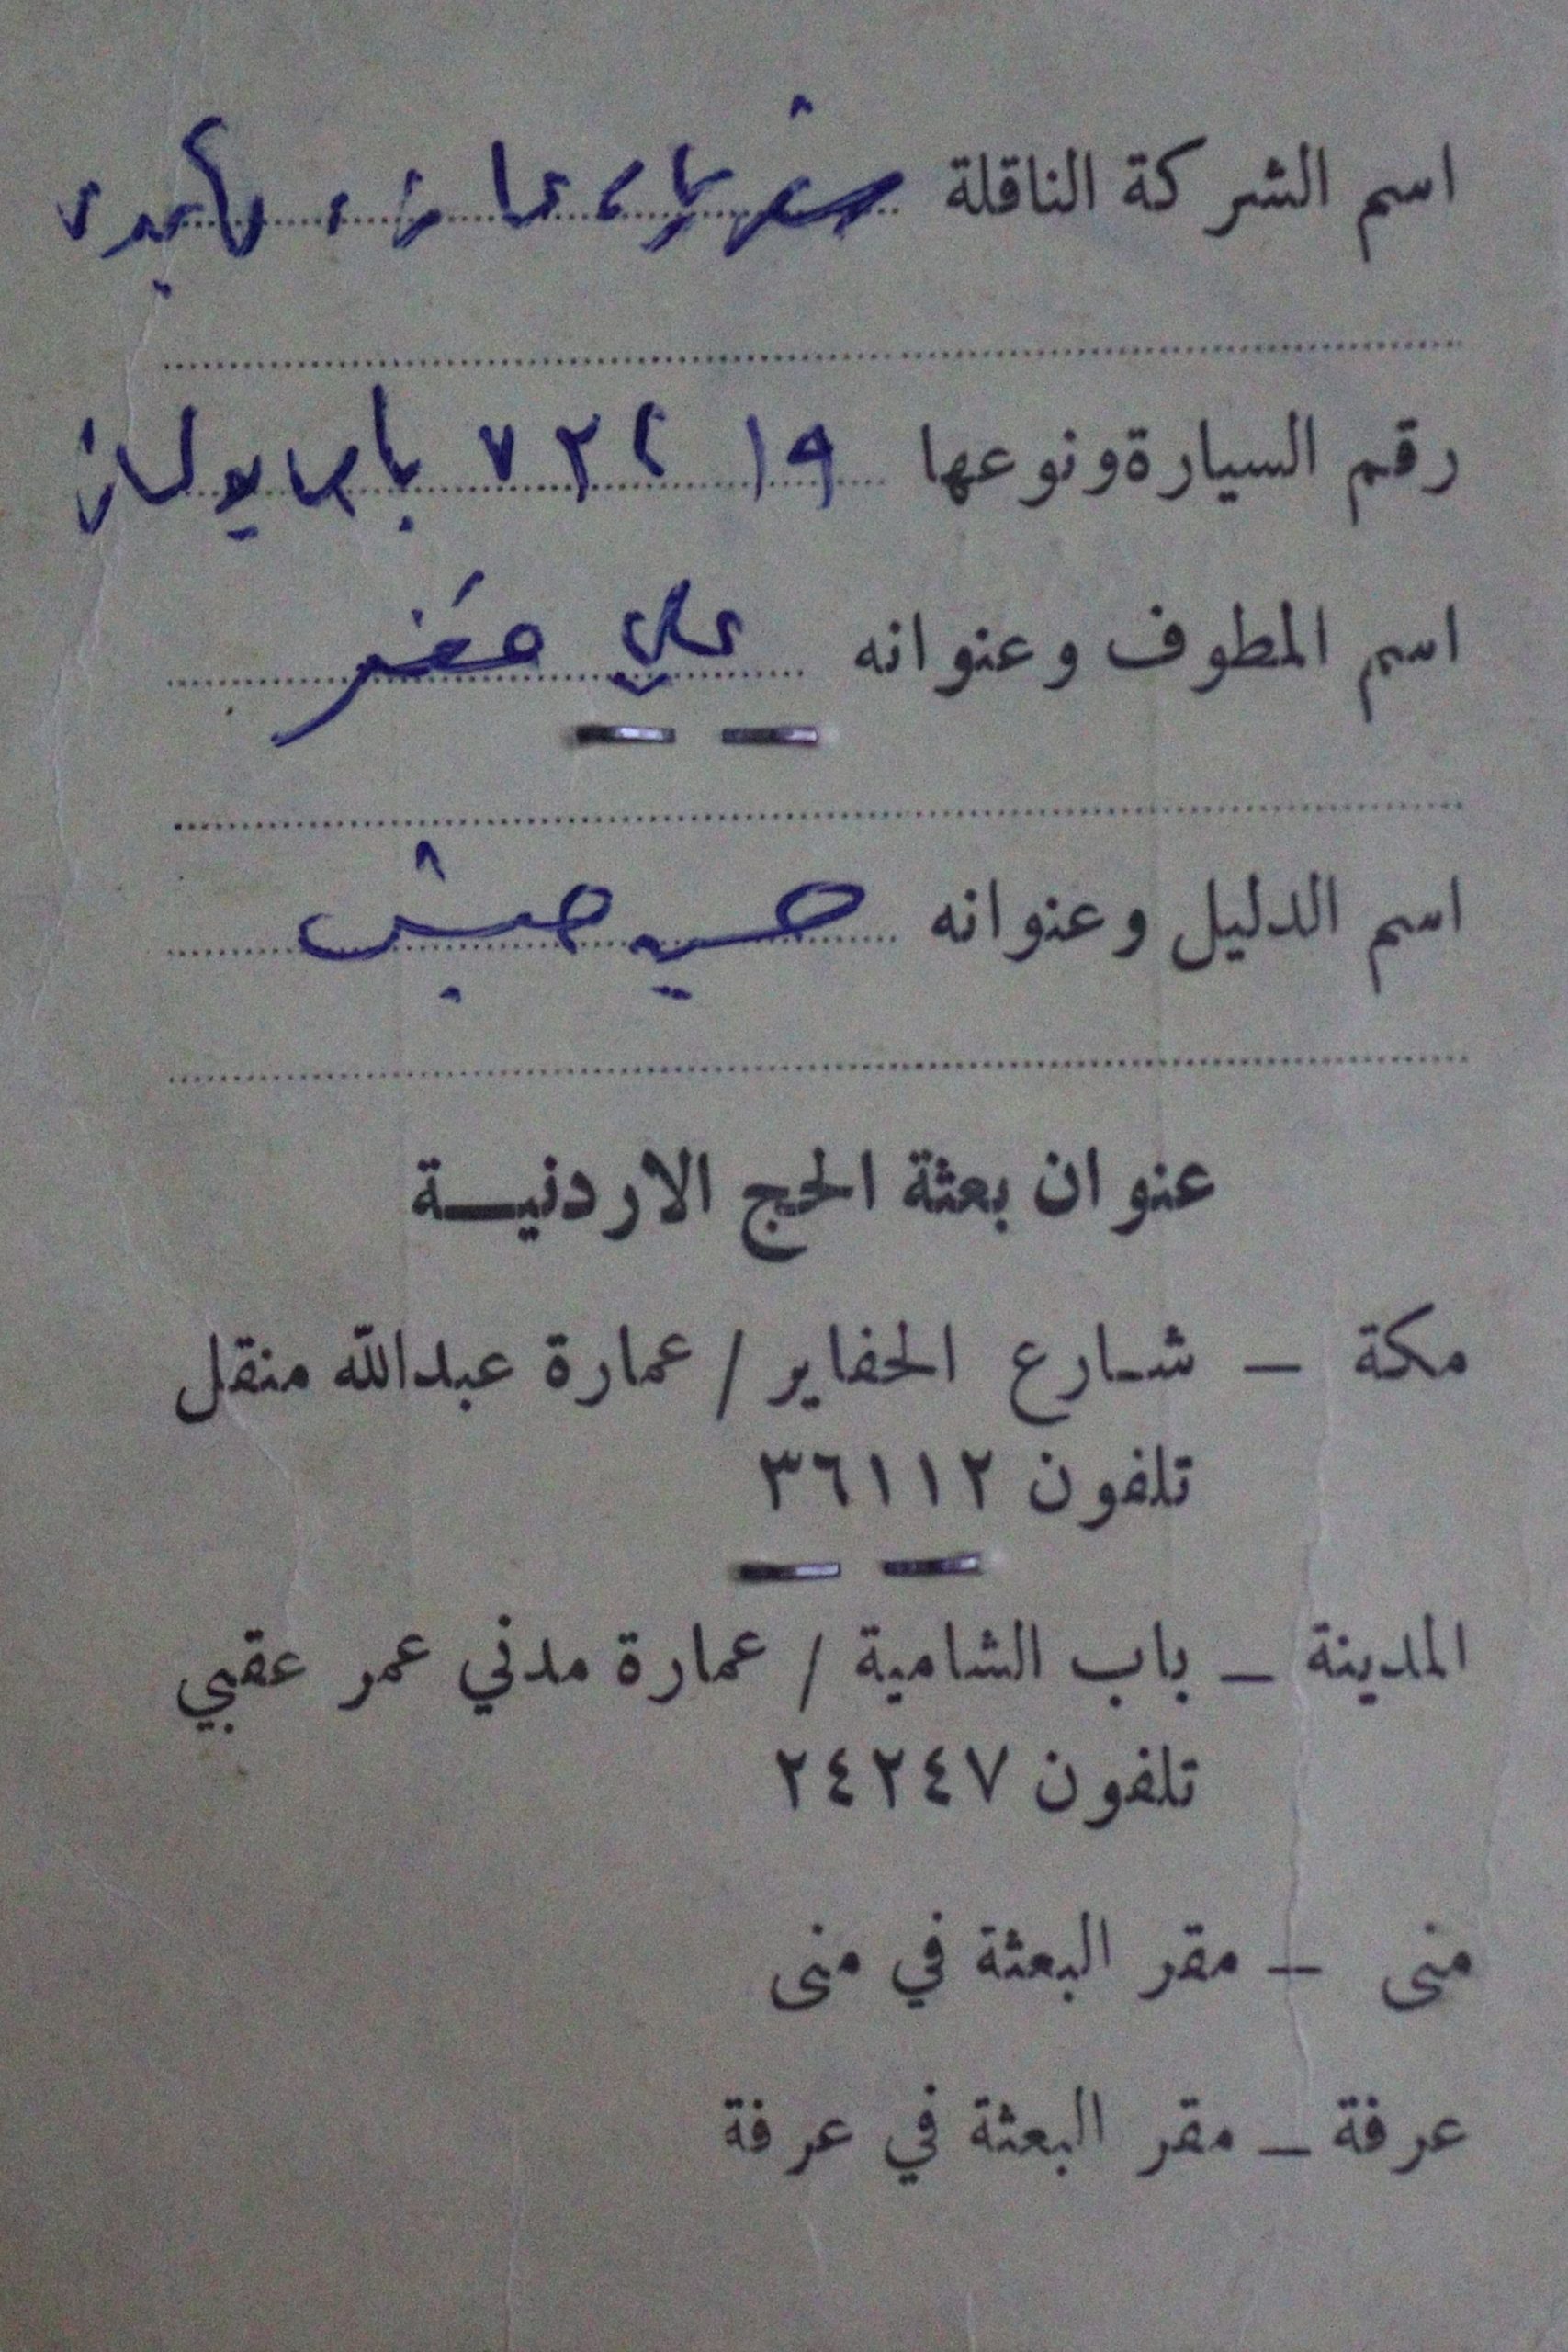 اسم الشركة الناقلة
رقم السيارة ونوعها ١٩ ٧٢٢ باص
اسم المطوف وعنوانه علي
اسم الدليل وعنوانه حسين حبش
عنوان بعثة الحج الاردنيـــة
مكة – شـارع الحفاير / عمارة عبدالله منقل
تلفون ٣٦١١٢
المدينة – باب الشامية / عمارة مدني عمر عقبي
تلفون ٢٤٢٤٧
منى – مقر البعثة في منى
عرفة – مقر البعثة في عرفة